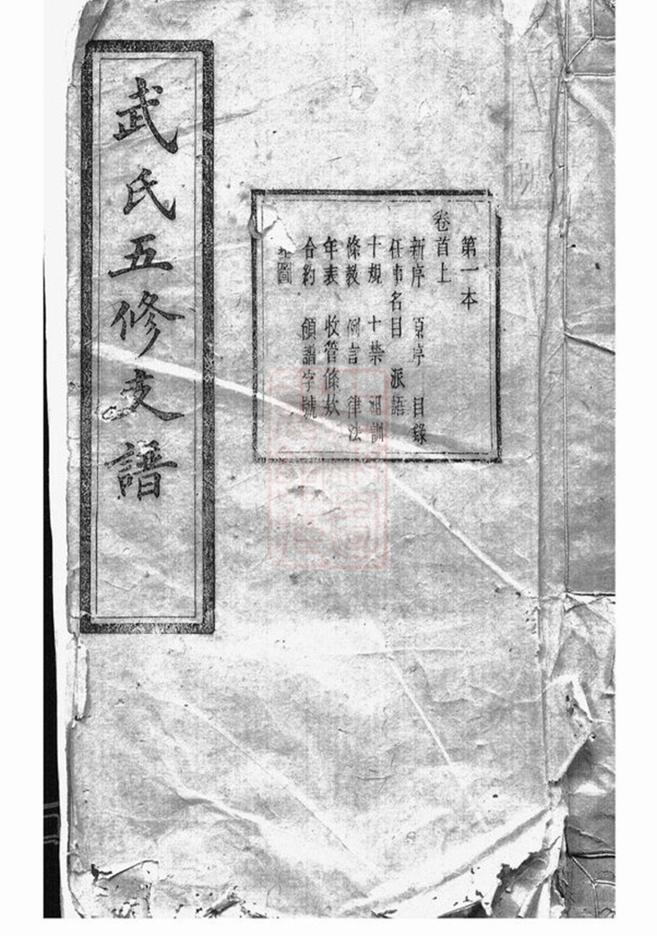 武氏五修支譜
第一本
卷首上
新序 原序 目錄
任事名目 派語
十規 十禁 祖訓
條教 例言 律法
年表 收管條欵
合約 領譜字號
圖